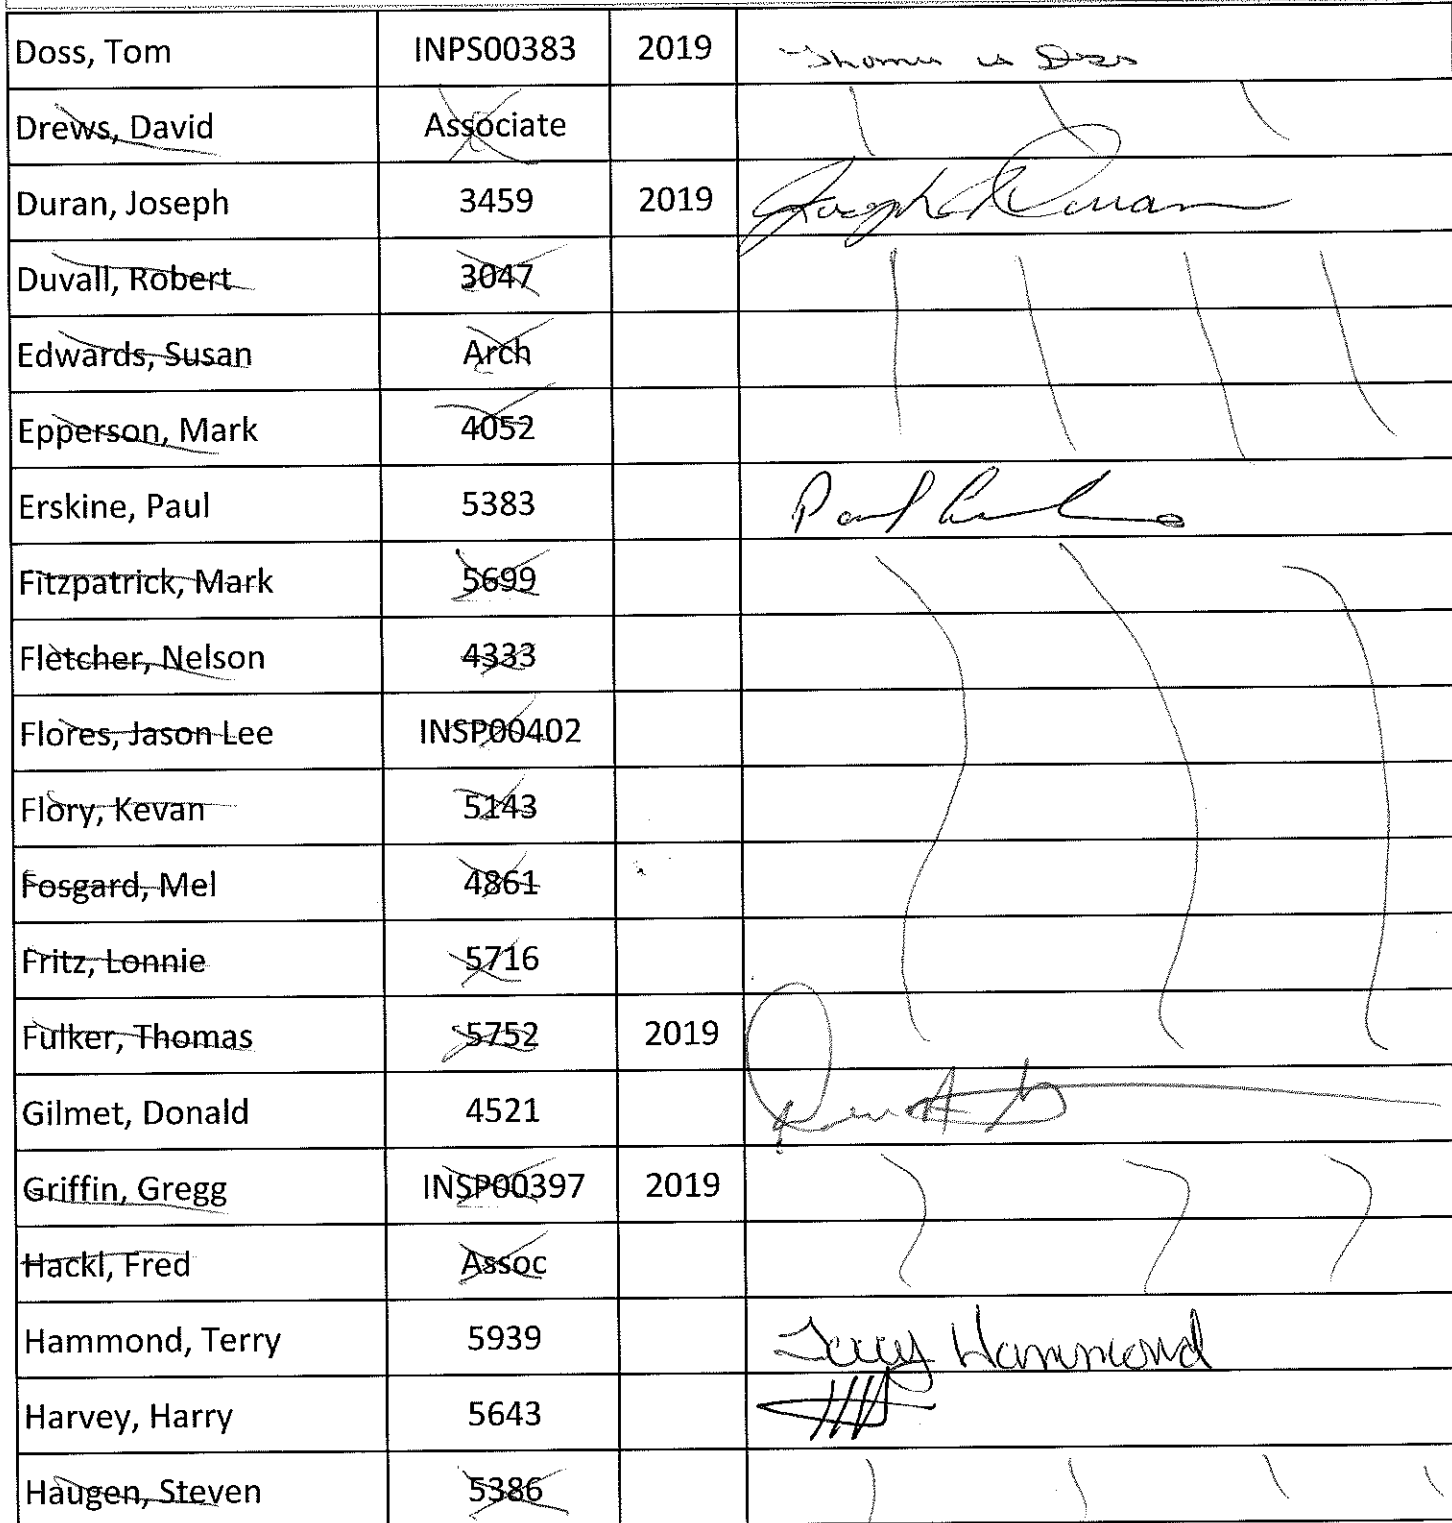 Doss, Tom INPS00383 2019 Thomas Doss
Drews, David Associate
Duran, Joseph 3459 2019 Joseph Duran
Duvall, Robert 3047
Edwards, Susan Arch
Epperson, Mark 4052
Erskine, Paul 5383 Paul
Fitzpatrick, Mark 5699
Fletcher, Nelson 4333
Flores, Jason Lee INSP00402
Flory, Kevan 5143
Fosgard, Mel 4861
Fritz, Lonnie 5716
Fulker, Thomas 5752 2019
Gilmet, Donald 4521
Griffin, Gregg INSP00397 2019
Hackl, Fred Assoc
Hammond, Terry 5939 Terry Hammond
Harvey, Harry 5643
Haugen, Steven 5386